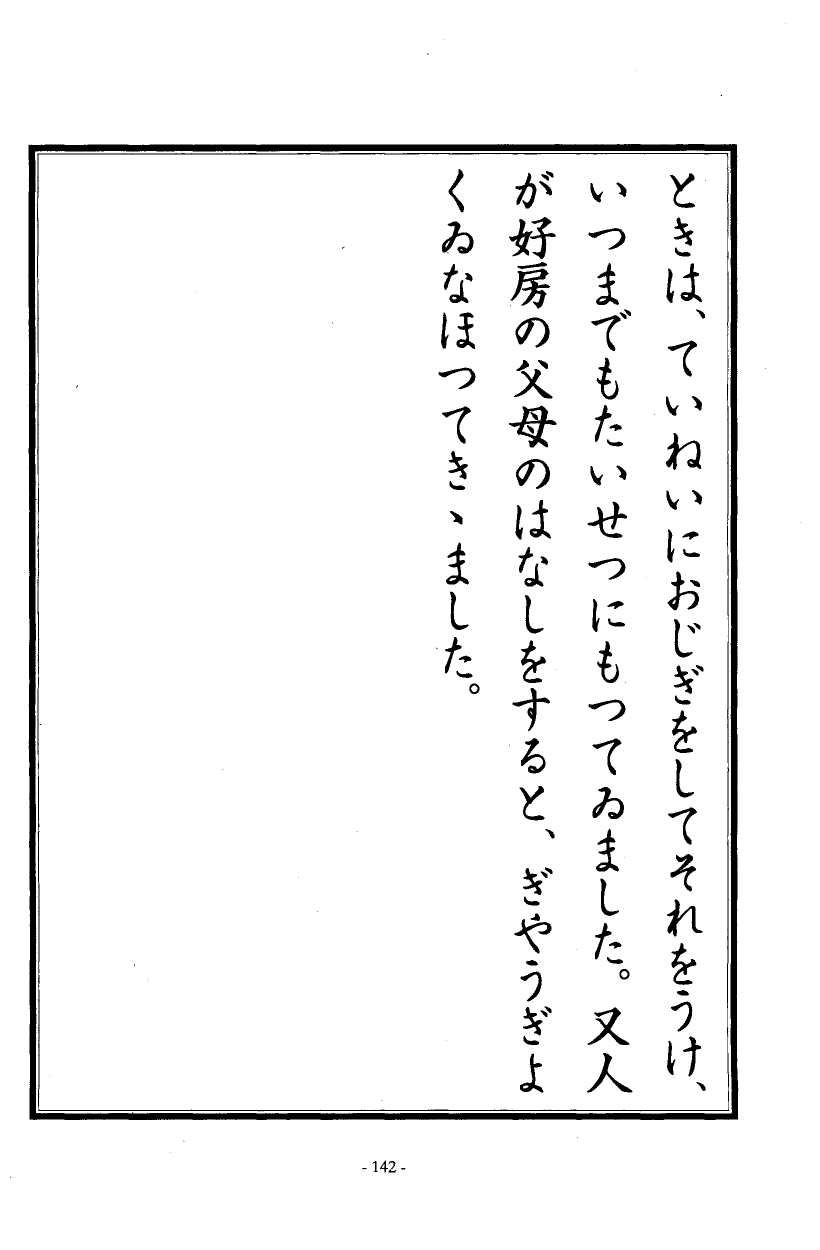 ときは、ていねいにおじぎをしてそれをうけ、
いつまでもたいせつにもつてゐました。又人
が好房の父母のはなしをすると、ぎやうぎよ
くゐなほつてきゝました。
- 142 -